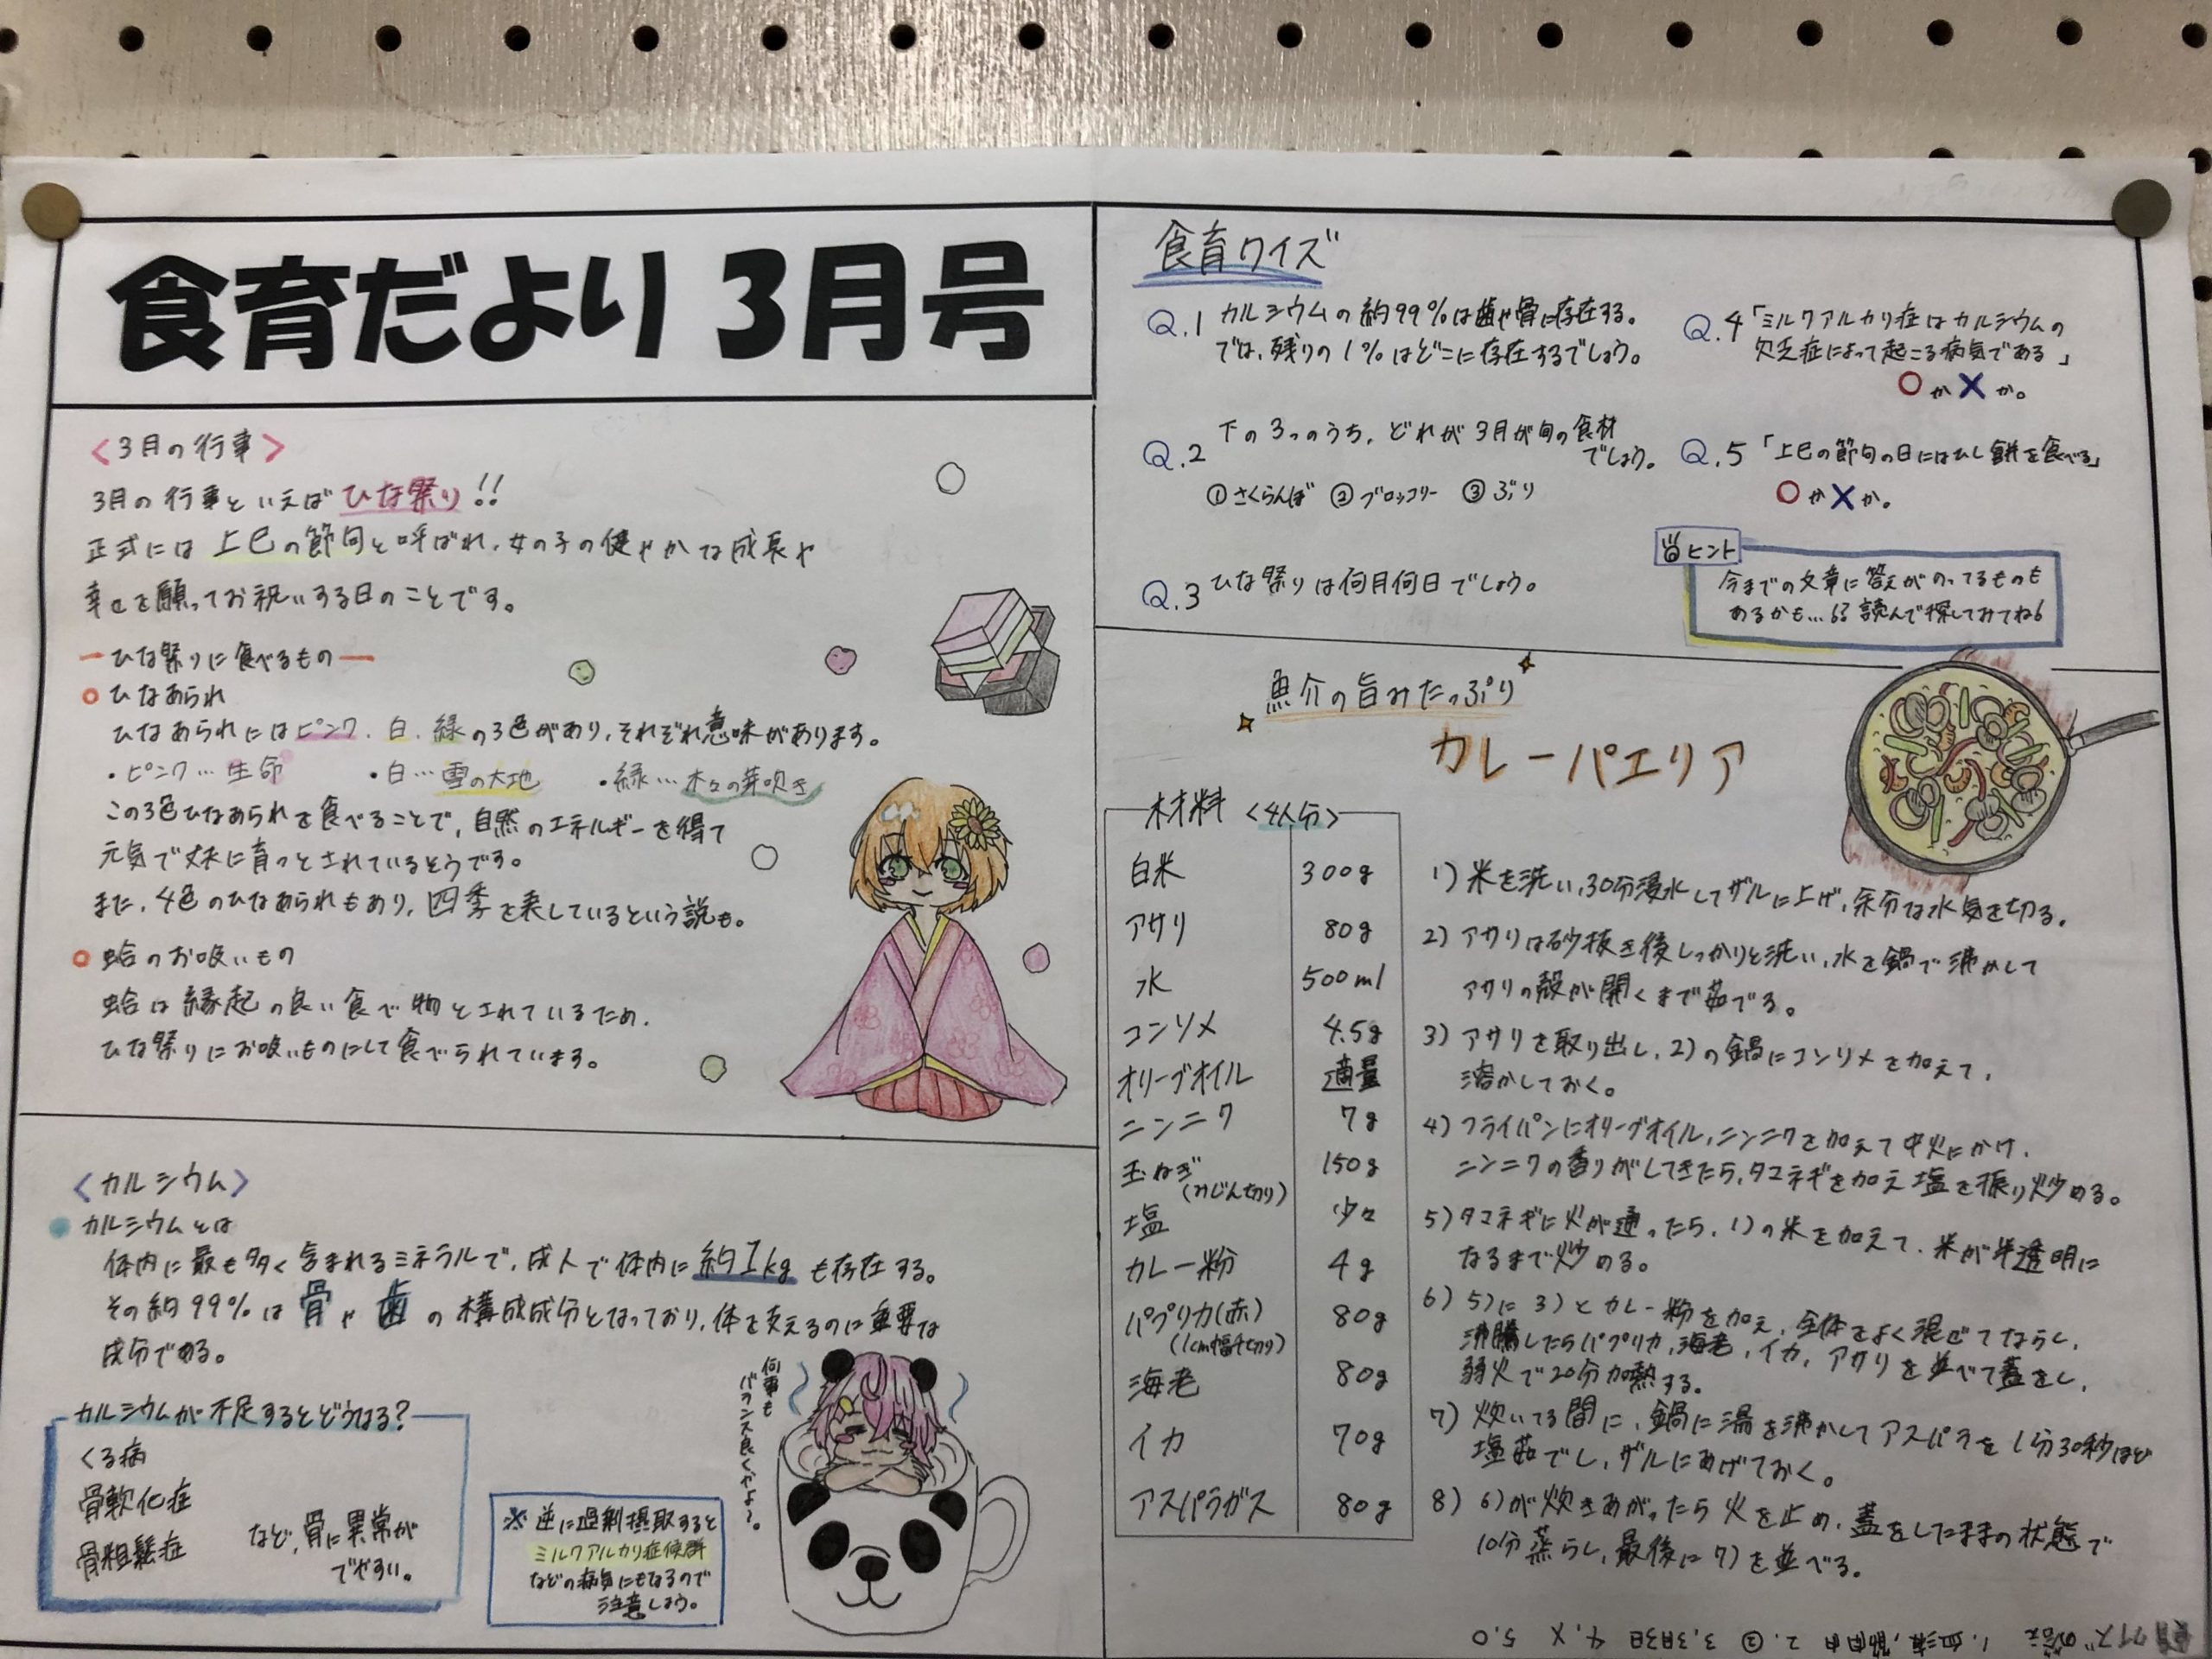 食育だより 3月号
〈3月の行事〉
3月の行事といえばひな祭り!!
正式には上巳の節句と呼ばれ、女の子の健やかな成長や
幸せを願ってお祝いする日のことです。
ーひな祭りに食べるものー
ひなあられ
ひなあられにはピンク、白、緑の3色があり、それぞれ意味があります。
・ピンク…生命 ・白…雪の大地 ・緑…木々の芽吹き
この3色ひなあられを食べることで、自然のエネルギーを得て
元気で丈夫に育つとされているそうです。
また、4色のひなあられもあり、四季を表しているという説も。
蛤のお吸いもの
蛤は縁起の良い食べ物とされているため、
ひな祭りにお吸いものにして食べられています。
〈カルシウム〉
カルシウムとは
体内に最も多く含まれるミネラルで、成人で体内に約1kgも存在する。
その約99%は骨や歯の構成成分となっており、体を支えるのに重要な
成分である。
カルシウムが不足するとどうなる?
くる病
骨軟化症
骨粗鬆症
など、骨に異常が
でやすい。
※逆に過剰摂取すると
ミルクアルカリ症候群
などの病気にもなるので
注意しよう。
何事も
バランス良しやよ〜。
食育クイズ
Q.1 カルシウムの約99%は歯や骨に存在する。
では、残りの1%はどこに存在するでしょう。
Q.2 下の3つのうち、どれが3月が旬の食材
でしょう。
①さくらんぼ ②ブロッコリー ③ぶり
Q.3 ひな祭りは何月何日でしょう。
Q.4「ミルクアルカリ症はカルシウムの
欠乏症によって起こる病気である」
○か×か。
Q.5「上巳の節句の日にはひし餅を食べる」
○か×か。
ヒント
今までの文章に答えがのってるものも
あるかも…!?読んで探してみてね!
魚介の旨みたっぷり
カレーパエリア
材料〈4人分〉
白米 300g
アサリ 80g
水 500ml
コンソメ 4.5g
オリーブオイル 適量
ニンニク 7g
玉ねぎ 150g
(みじん切り)
塩 少々
カレー粉 4g
パプリカ(赤) 80g
(1cm幅切り)
海老 80g
イカ 70g
アスパラガス 80g
1) 米を洗い、30分浸水してザルに上げ、余分な水気を切る。
2) アサリは砂抜き後しっかりと洗い、水を鍋で沸かして
アサリの殻が開くまで茹でる。
3) アサリを取り出し、2)の鍋にコンソメを加えて、
溶かしておく。
4) フライパンにオリーブオイル、ニンニクを加えて中火にかけ、
ニンニクの香りがしてきたら、タマネギを加え塩を振り炒める。
5) タマネギに火が通ったら、1)の米を加えて、米が半透明に
なるまで炒める。
6) 5)に3)とカレー粉を加え、全体をよく混ぜてならし、
沸騰したらパプリカ、海老、イカ、アサリを並べて蓋をし、
弱火で20分加熱する。
7) 炊いてる間に、鍋に湯を沸かしてアスパラを1分30秒ほど
塩茹でし、ザルにあげておく。
8) 6)が炊きあがったら火を止め、蓋をしたままの状態で
10分蒸らし、最後に7)を並べる。
食育クイズの答え 1.血液、筋肉中 2.② 3.3月3日 4.× 5.○